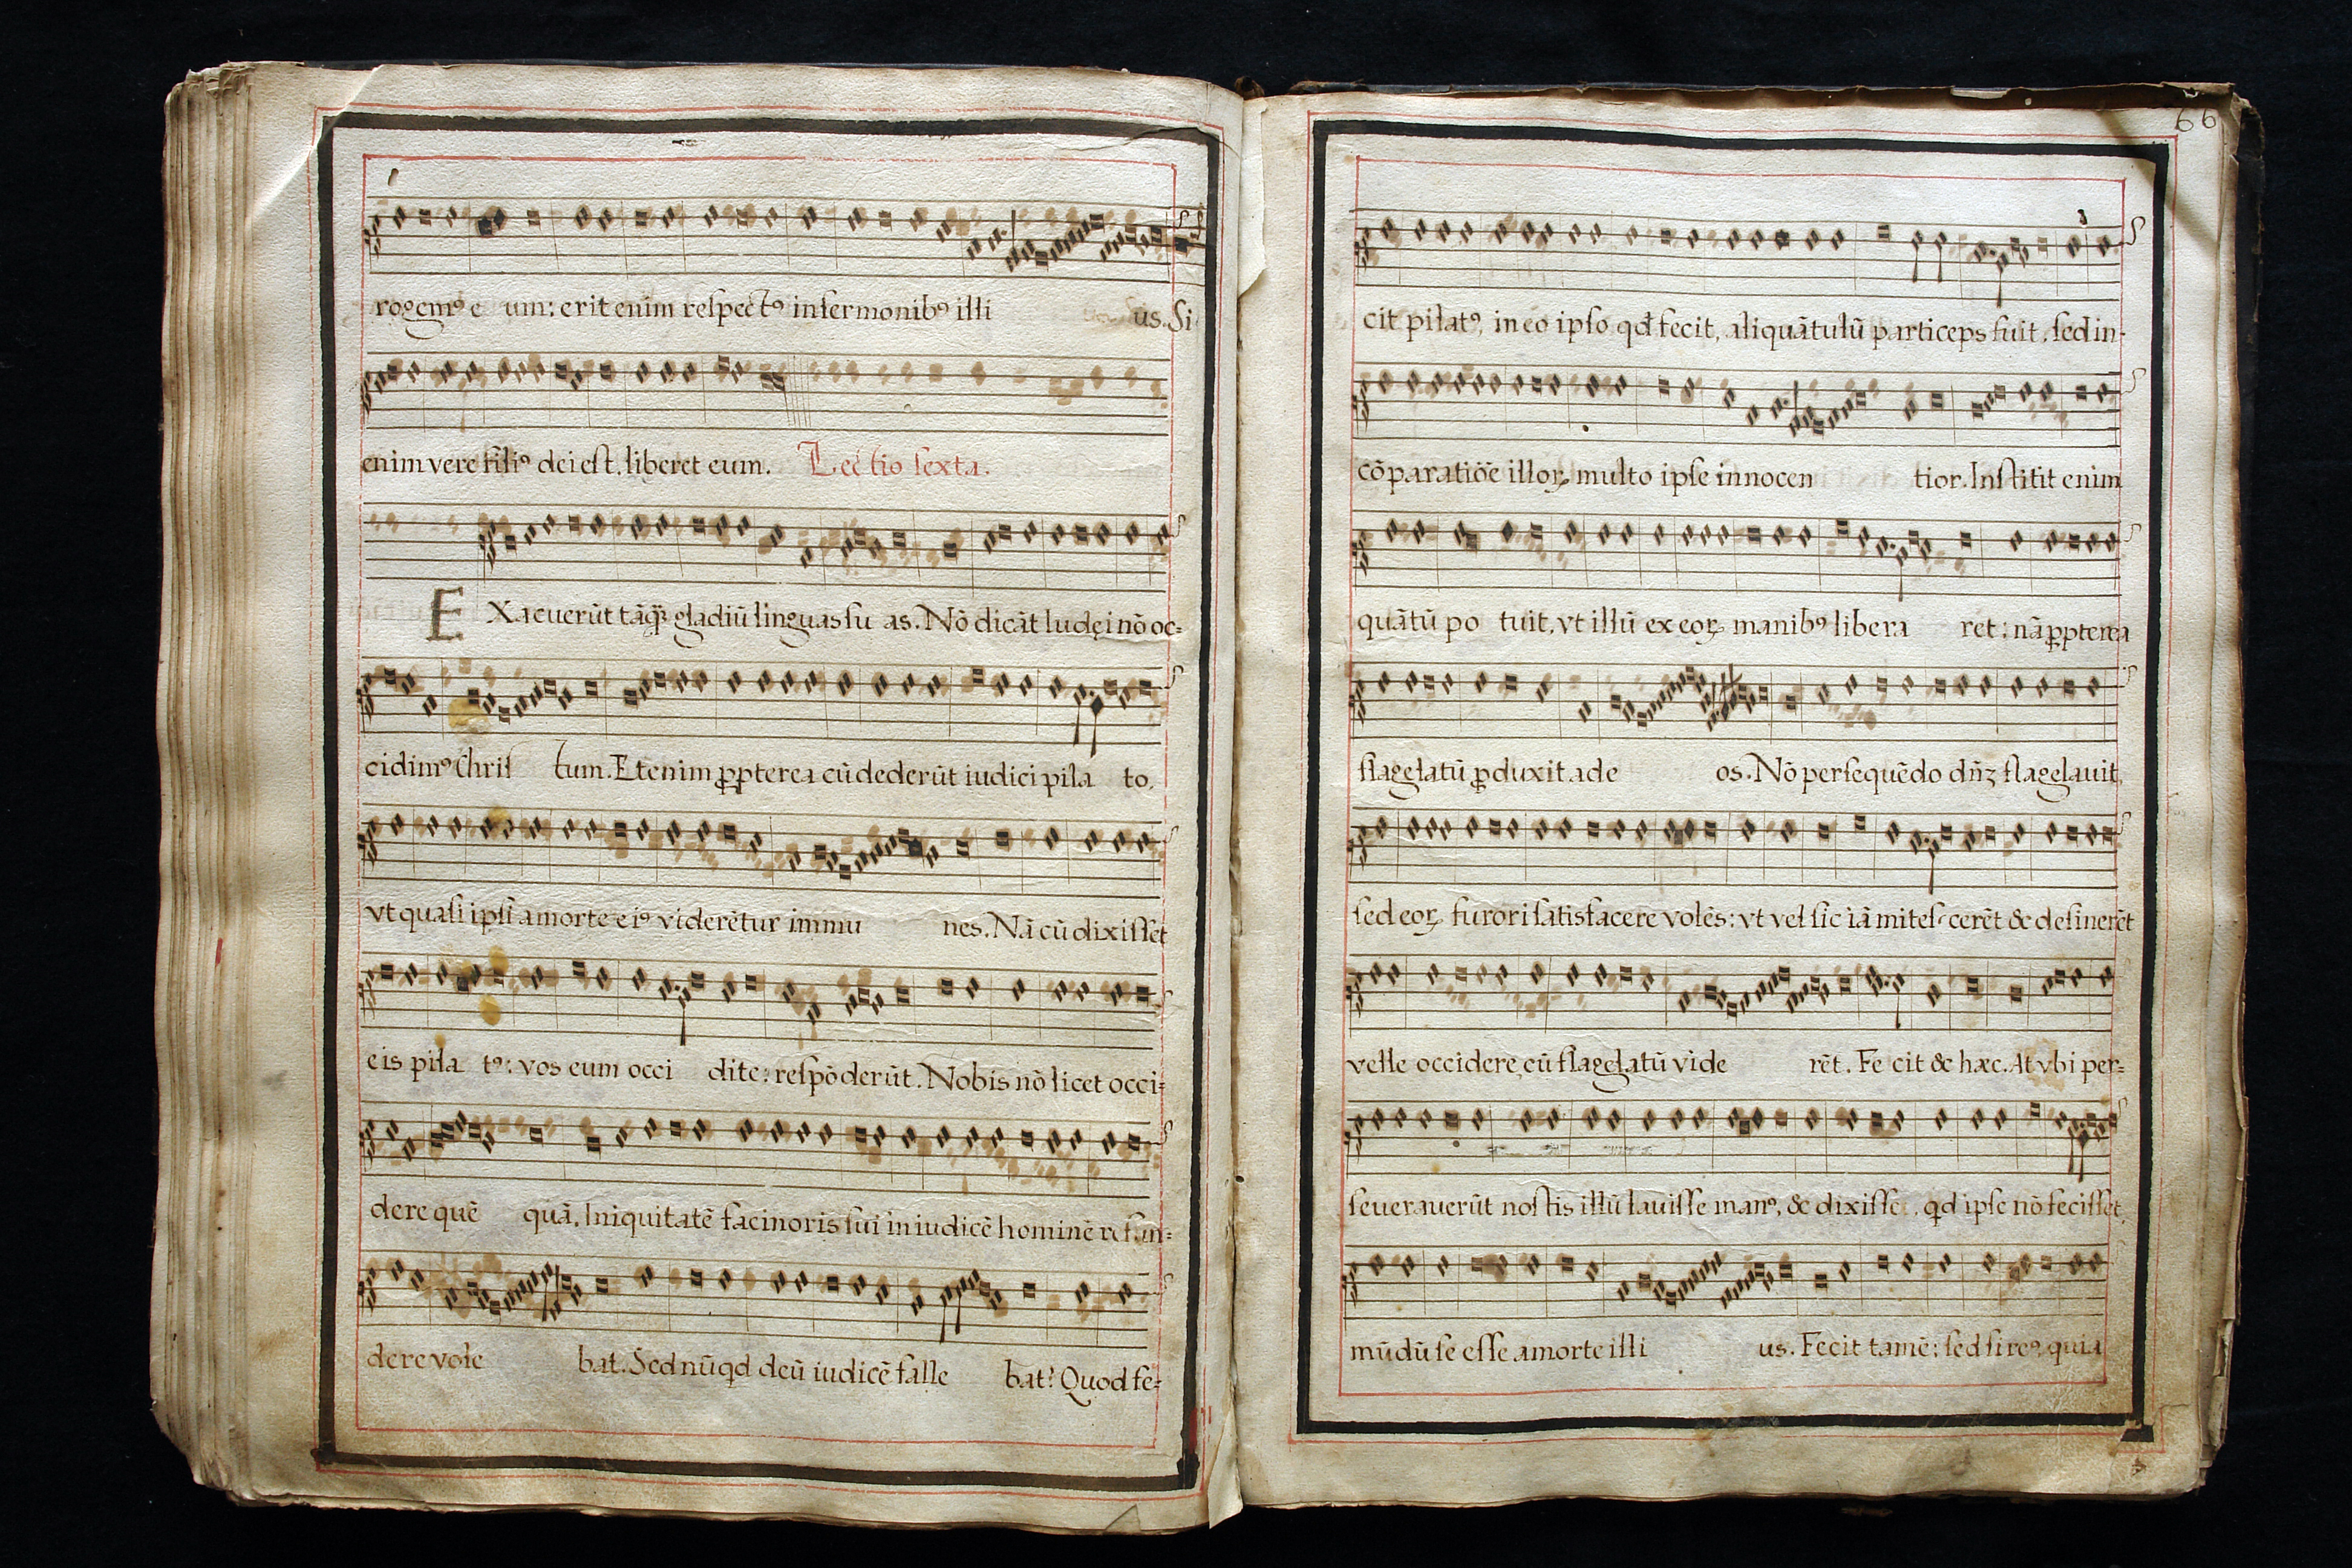 rogemꝰ e um: erit enim reſpectꝰ in ſermonibꝰ illi us. Si
enim vere filiꝰ dei eſt, liberet eum. Lectio ſexta.
EXacuerūt tāq̄ʒ gladiū linguas ſu as. Nō dicāt Iudęi nō oc=
cidimꝰ Chriſ tum. Etenim ꝓpterea cū dederūt iudici pila to,
vt quaſi ipſi a morte eiꝰ viderētur immu nes. Nā cū dixiſſet
eis pila tꝰ: vos eum occi dite: reſpōderūt. Nobis nō licet occi=
dere quē quā. Iniquitatē facinoris ſui in iudicē hominē refun=
dere vole bat. Sed nūqd deū iudicē falle bat? Quod fe=
66
cit pilatꝰ, in eo ipſo qd fecit, aliquātulū particeps fuit, ſed in
cōparatiōe illoꝝ multo ipſe innocen tior. Inſtitit enim
quātū po tuit, vt illū ex eoꝝ manibꝰ libera ret: nā ꝓpterea
flagelatū ꝓduxit ad e os. Nō perſequēdo dn̄ʒ flagelavit,
ſed eoꝝ furori ſatisfacere volēs: vt vel ſic iā miteſ cerēt & deſinerēt
velle occidere, cū flagelatū vide rēt. Fe cit & hæc. At vbi per=
ſeuerauerūt noſtis illū lauiſſe manꝰ, & dixiſſe, qd ipſe nō feciſſet,
mūdū ſe eſſe a morte illi us. Fecit tamē: ſed ſi reꝰ, quia